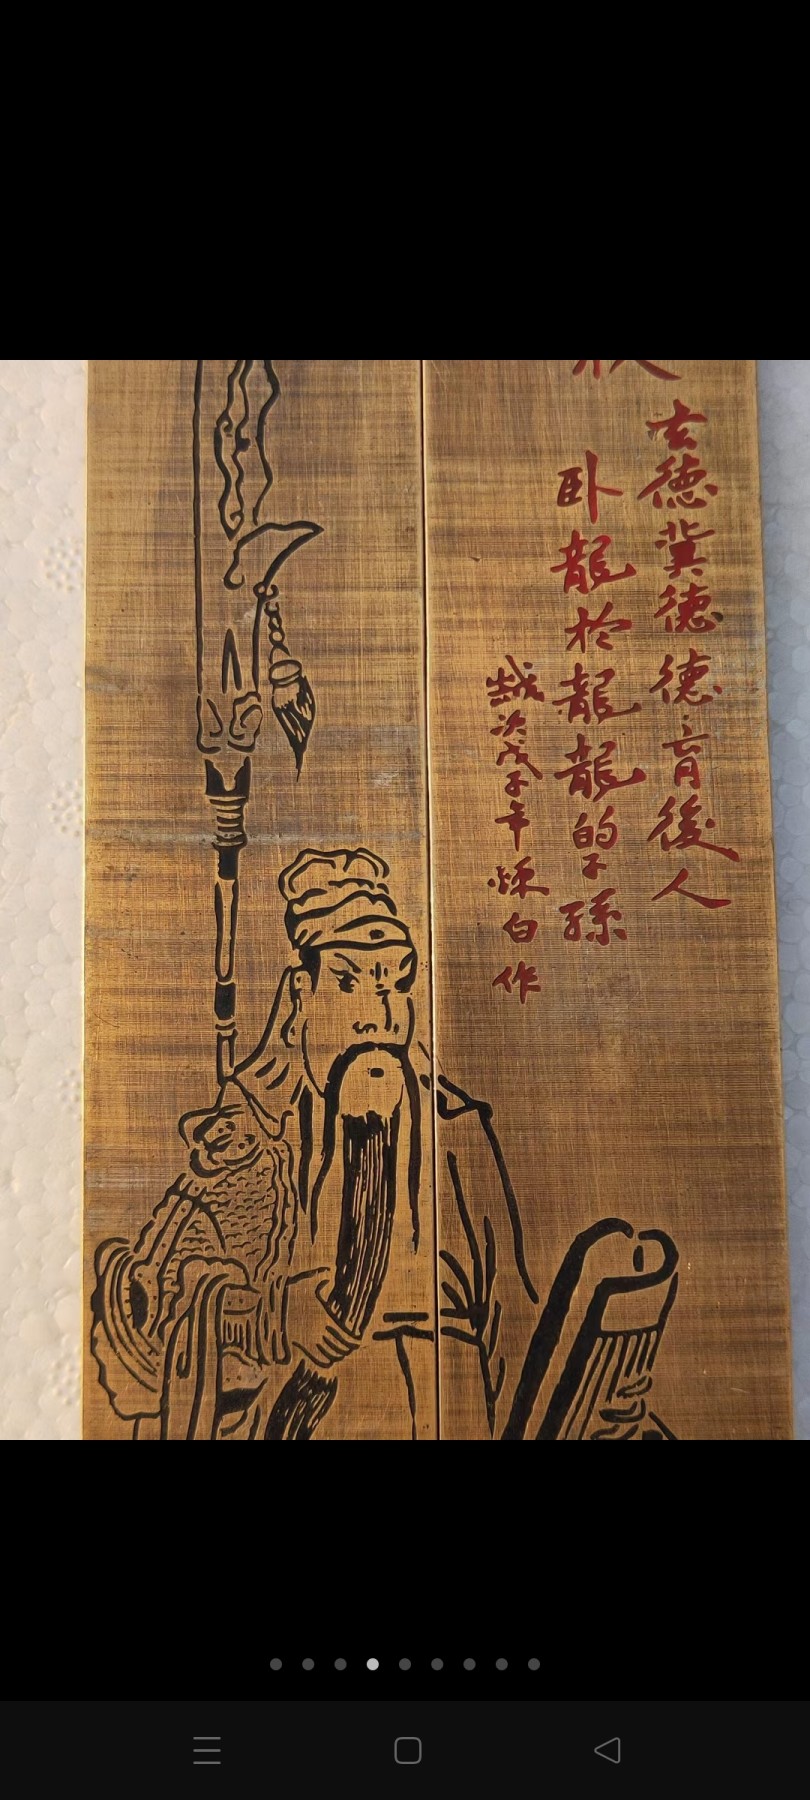 玄德冀德德育後人
卧龍於龍龍的子孫
歲次戊子年 白作